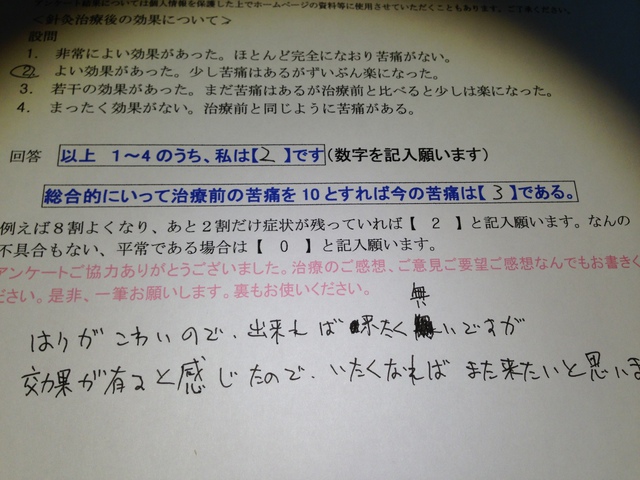 アンケート結果については個人情報を保護した上でホームページの資料等に使用させていただくこともあります。ご了承ください。
＜針灸治療後の効果について＞
設問
1. 非常によい効果があった。ほとんど完全になおり苦痛がない。
2. よい効果があった。少し苦痛はあるがずいぶん楽になった。
3. 若干の効果があった。まだ苦痛はあるが治療前と比べると少しは楽になった。
4. まったく効果がない。治療前と同じように苦痛がある。
回答 以上 1～4のうち、私は【 2 】です(数字を記入願います)
総合的にいって治療前の苦痛を10とすれば今の苦痛は【 3 】である。
例えば８割よくなり、あと２割だけ症状が残っていれば【 ２ 】と記入願います。なんの
不具合もない、平常である場合は【 ０ 】と記入願います。
アンケートご協力ありがとうございました。治療のご感想、ご意見ご要望ご感想なんでもお書きく
ださい。是非、一筆お願いします。裏もお使いください。
はりがこわいので、出来れば 来たく無いですが
効果が有ると感じたので、いたくなれば また来たいと思いま